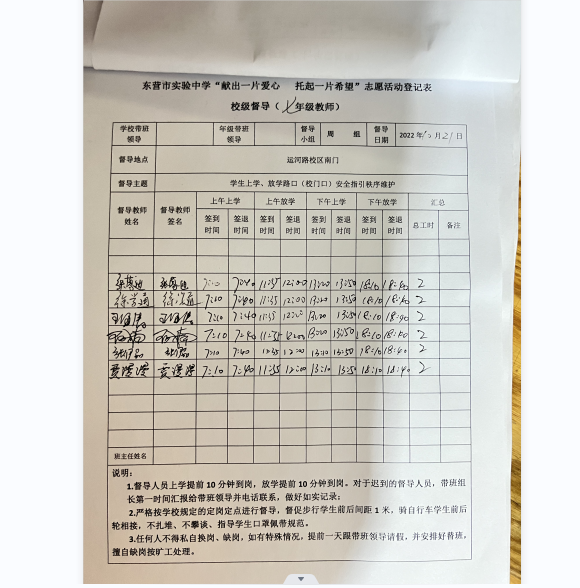 东营市实验中学“献出一片爱心 托起一片希望”志愿活动登记表
校级督导（七年级教师）
学校带班领导 年级带班领导 督导小组 周 组 督导日期 2022年 月21日
督导地点 运河路校区南门
督导主题 学生上学、放学路口（校门口）安全指引秩序维护
督导教师姓名 督导教师签名 上午上学 上午放学 下午上学 下午放学 汇总
签到时间 签退时间 签到时间 签退时间 签到时间 签退时间 签到时间 签退时间 总工时 备注
7:10 7:40 11:35 12:00 13:20 13:50 18:10 18:40 2
7:10 7:40 11:35 12:00 13:20 13:50 18:10 18:40 2
7:10 7:40 11:35 12:00 13:20 13:50 18:10 18:40 2
7:10 7:40 11:35 12:00 13:20 13:50 18:10 18:40 2
7:10 7:40 12:00 13:50 18:10 18:40 2
贾漫漫 贾漫漫 7:10 7:40 11:35 12:00 13:10 13:50 18:10 18:40 2
班主任姓名
说明：
1.督导人员上学提前10分钟到岗，放学提前10分钟到岗。对于迟到的督导人员，带班组
长第一时间汇报给带班领导并电话联系，做好如实记录；
2.严格按学校规定的定岗定点进行督导，督促步行学生前后间距1米，骑自行车学生前后
轮相接，不扎堆、不攀谈、指导学生口罩佩带规范。
3.任何人不得私自换岗、缺岗，如有特殊情况，提前一天跟带班领导请假，并安排好替班。
擅自缺岗按旷工处理。